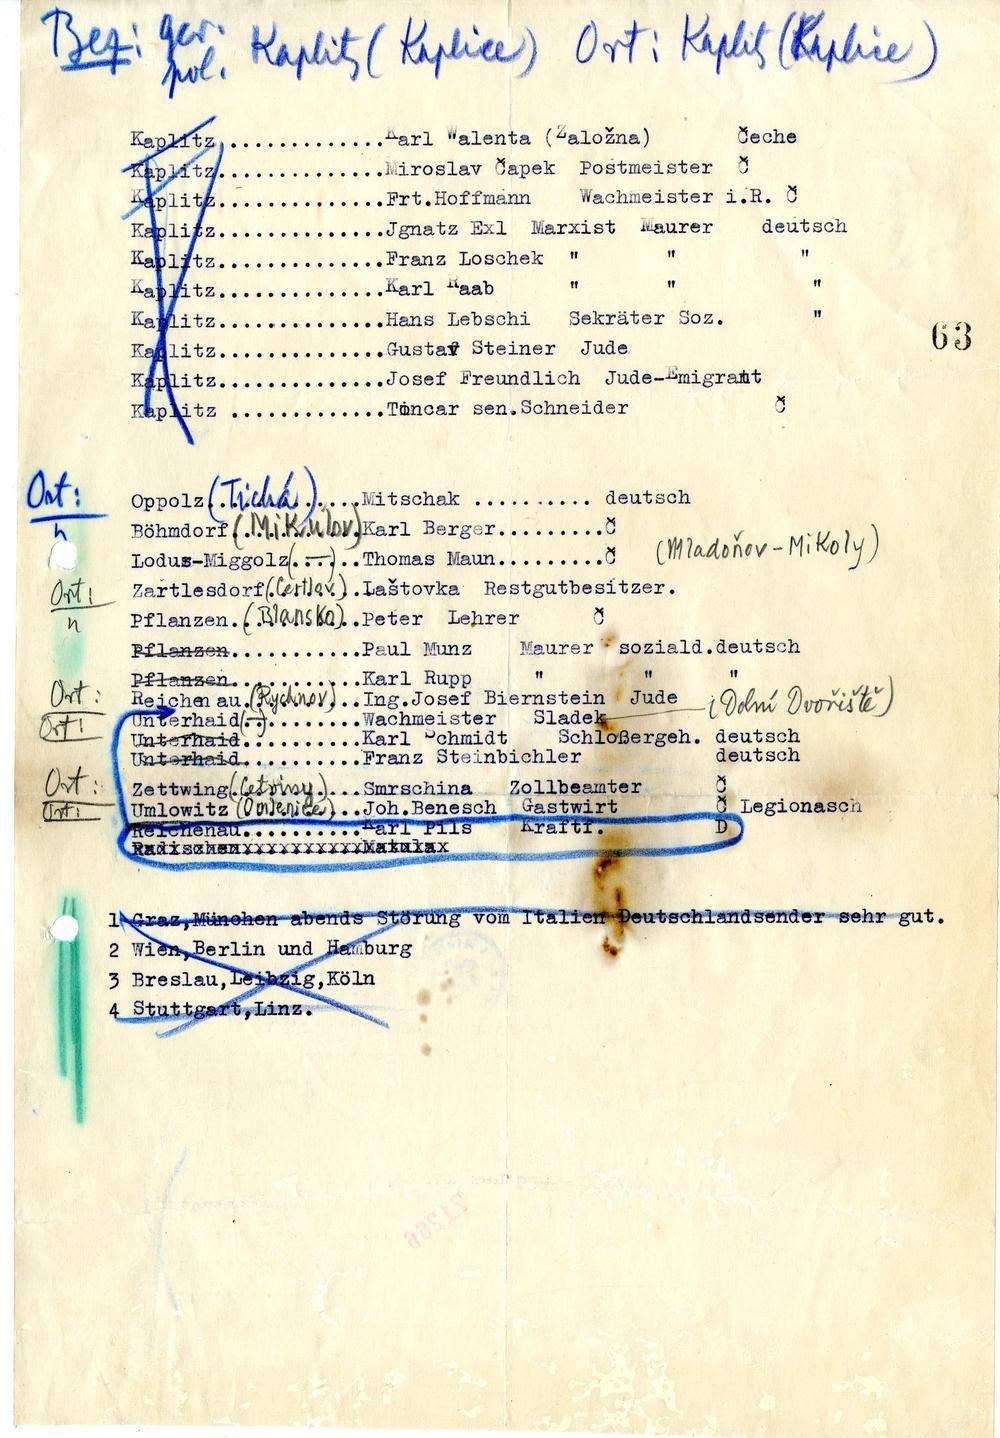 Bez: ger. Kaplitz (Kaplice) Ort: Kaplitz (Kaplice)
pol.
Kaplitz...............Karl Walenta (Založna) Čeche
Kaplitz...............Miroslav Čapek Postmeister Č
Kaplitz...............Frt.Hoffmann Wachmeister i.R. Č
Kaplitz...............Jgnatz Exl Marxist Maurer deutsch
Kaplitz...............Franz Loschek " " "
Kaplitz...............Karl Raab " " "
Kaplitz...............Hans Lebschi Sekräter Soz. "
Kaplitz...............Gustav Steiner Jude
Kaplitz...............Josef Freundlich Jude-Emigrant
Kaplitz ..............Toncar sen.Schneider Č
63
Ort: Oppolz (Tichá)....Mitschak .......... deutsch
n Böhmdorf (Mikulov) Karl Berger.........Č
Lodus-Miggolz(...)..Thomas Maun.........Č (Mladoňov-Mikoly)
Ort: Zartlesdorf(Čertlov)..Laštovka Restgutbesitzer.
n Pflanzen.(Blansko)..Peter Lehrer Č
Pflanzen...........Paul Munz Maurer soziald.deutsch
Pflanzen...........Karl Rupp " " "
Ort: Reichenau.(Rychnov)..Ing.Josef Biernstein Jude
Ort: Unterhaid(—)........Wachmeister Sladek (Dolní Dvořiště)
Unterhaid..........Karl Schmidt Schloßergeh. deutsch
Unterhaid..........Franz Steinbichler deutsch
Ort: Zettwing(Cetviny)...Smrschina Zollbeamter Č
Ort: Umlowitz (Omlenice)...Joh.Benesch Gastwirt Č Legionasch
Reichenau..........Karl Pils Kraftf. D
Radischen
1 Graz,München abends Störung vom Italien Deutschlandsender sehr gut.
2 Wien,Berlin und Hamburg
3 Breslau,Leibzig,Köln
4 Stuttgart,Linz.